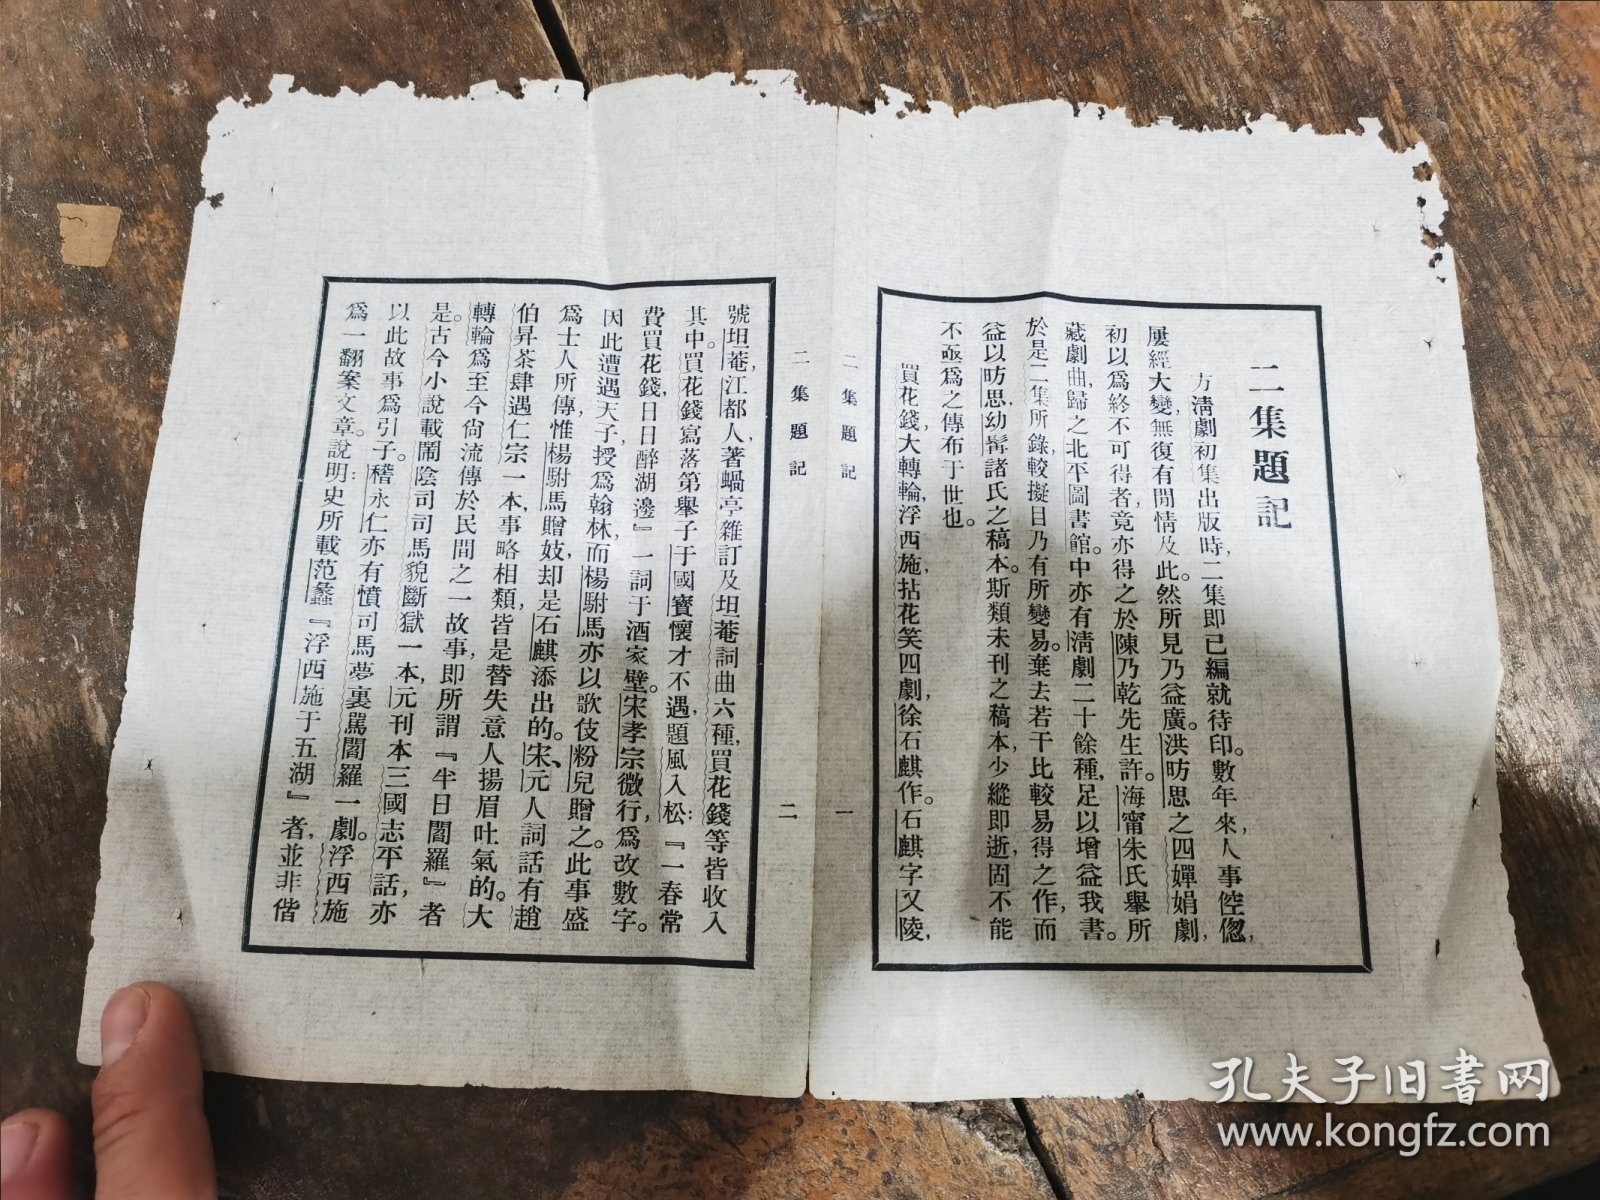 二集題記
方淸劇初集出版時，二集即已編就待印。數年來，人事倥偬，
屢經大變，無復有閒情及此。然所見乃益廣。洪昉思之四嬋娟劇，
初以爲終不可得者，竟亦得之於陳乃乾先生許。海甯朱氏舉所
藏劇曲，歸之北平圖書館。中亦有淸劇二十餘種，足以增益我書。
於是二集所錄，較擬目乃有所變易。棄去若干比較易得之作，而
益以昉思，幼髯諸氏之稿本。斯類未刊之稿本，少縱即逝，固不能
不亟爲之傳布于世也。
買花錢，大轉輪，浮西施，拈花笑四劇，徐石麒作。石麒字又陵，
二集題記
一
二集題記
二
號坦菴，江都人，著蝸亭雜訂及坦菴詞曲六種，買花錢等皆收入
其中。買花錢寫落第舉子于國寶懷才不遇，題風入松：『一春常
費買花錢，日日醉湖邊』一詞于酒家壁。宋孝宗微行，爲改數字。
因此遭遇天子，授爲翰林，而楊駙馬亦以歌伎粉兒贈之。此事盛
爲士人所傳，惟楊駙馬贈妓，却是石麒添出的。宋、元人詞話有趙
伯昇茶肆遇仁宗一本，事略相類，皆是替失意人揚眉吐氣的。大
轉輪爲至今尙流傳於民間之一故事，即所謂『半日閻羅』者
是。古今小說載鬧陰司司馬貌斷獄一本，元刊本三國志平話，亦
以此故事爲引子。稽永仁亦有憤司馬夢裏罵閻羅一劇。浮西施
爲一翻案文章。說明：史所載范蠡『浮西施于五湖』者，並非偕
孔夫子旧書网
www.kongfz.com